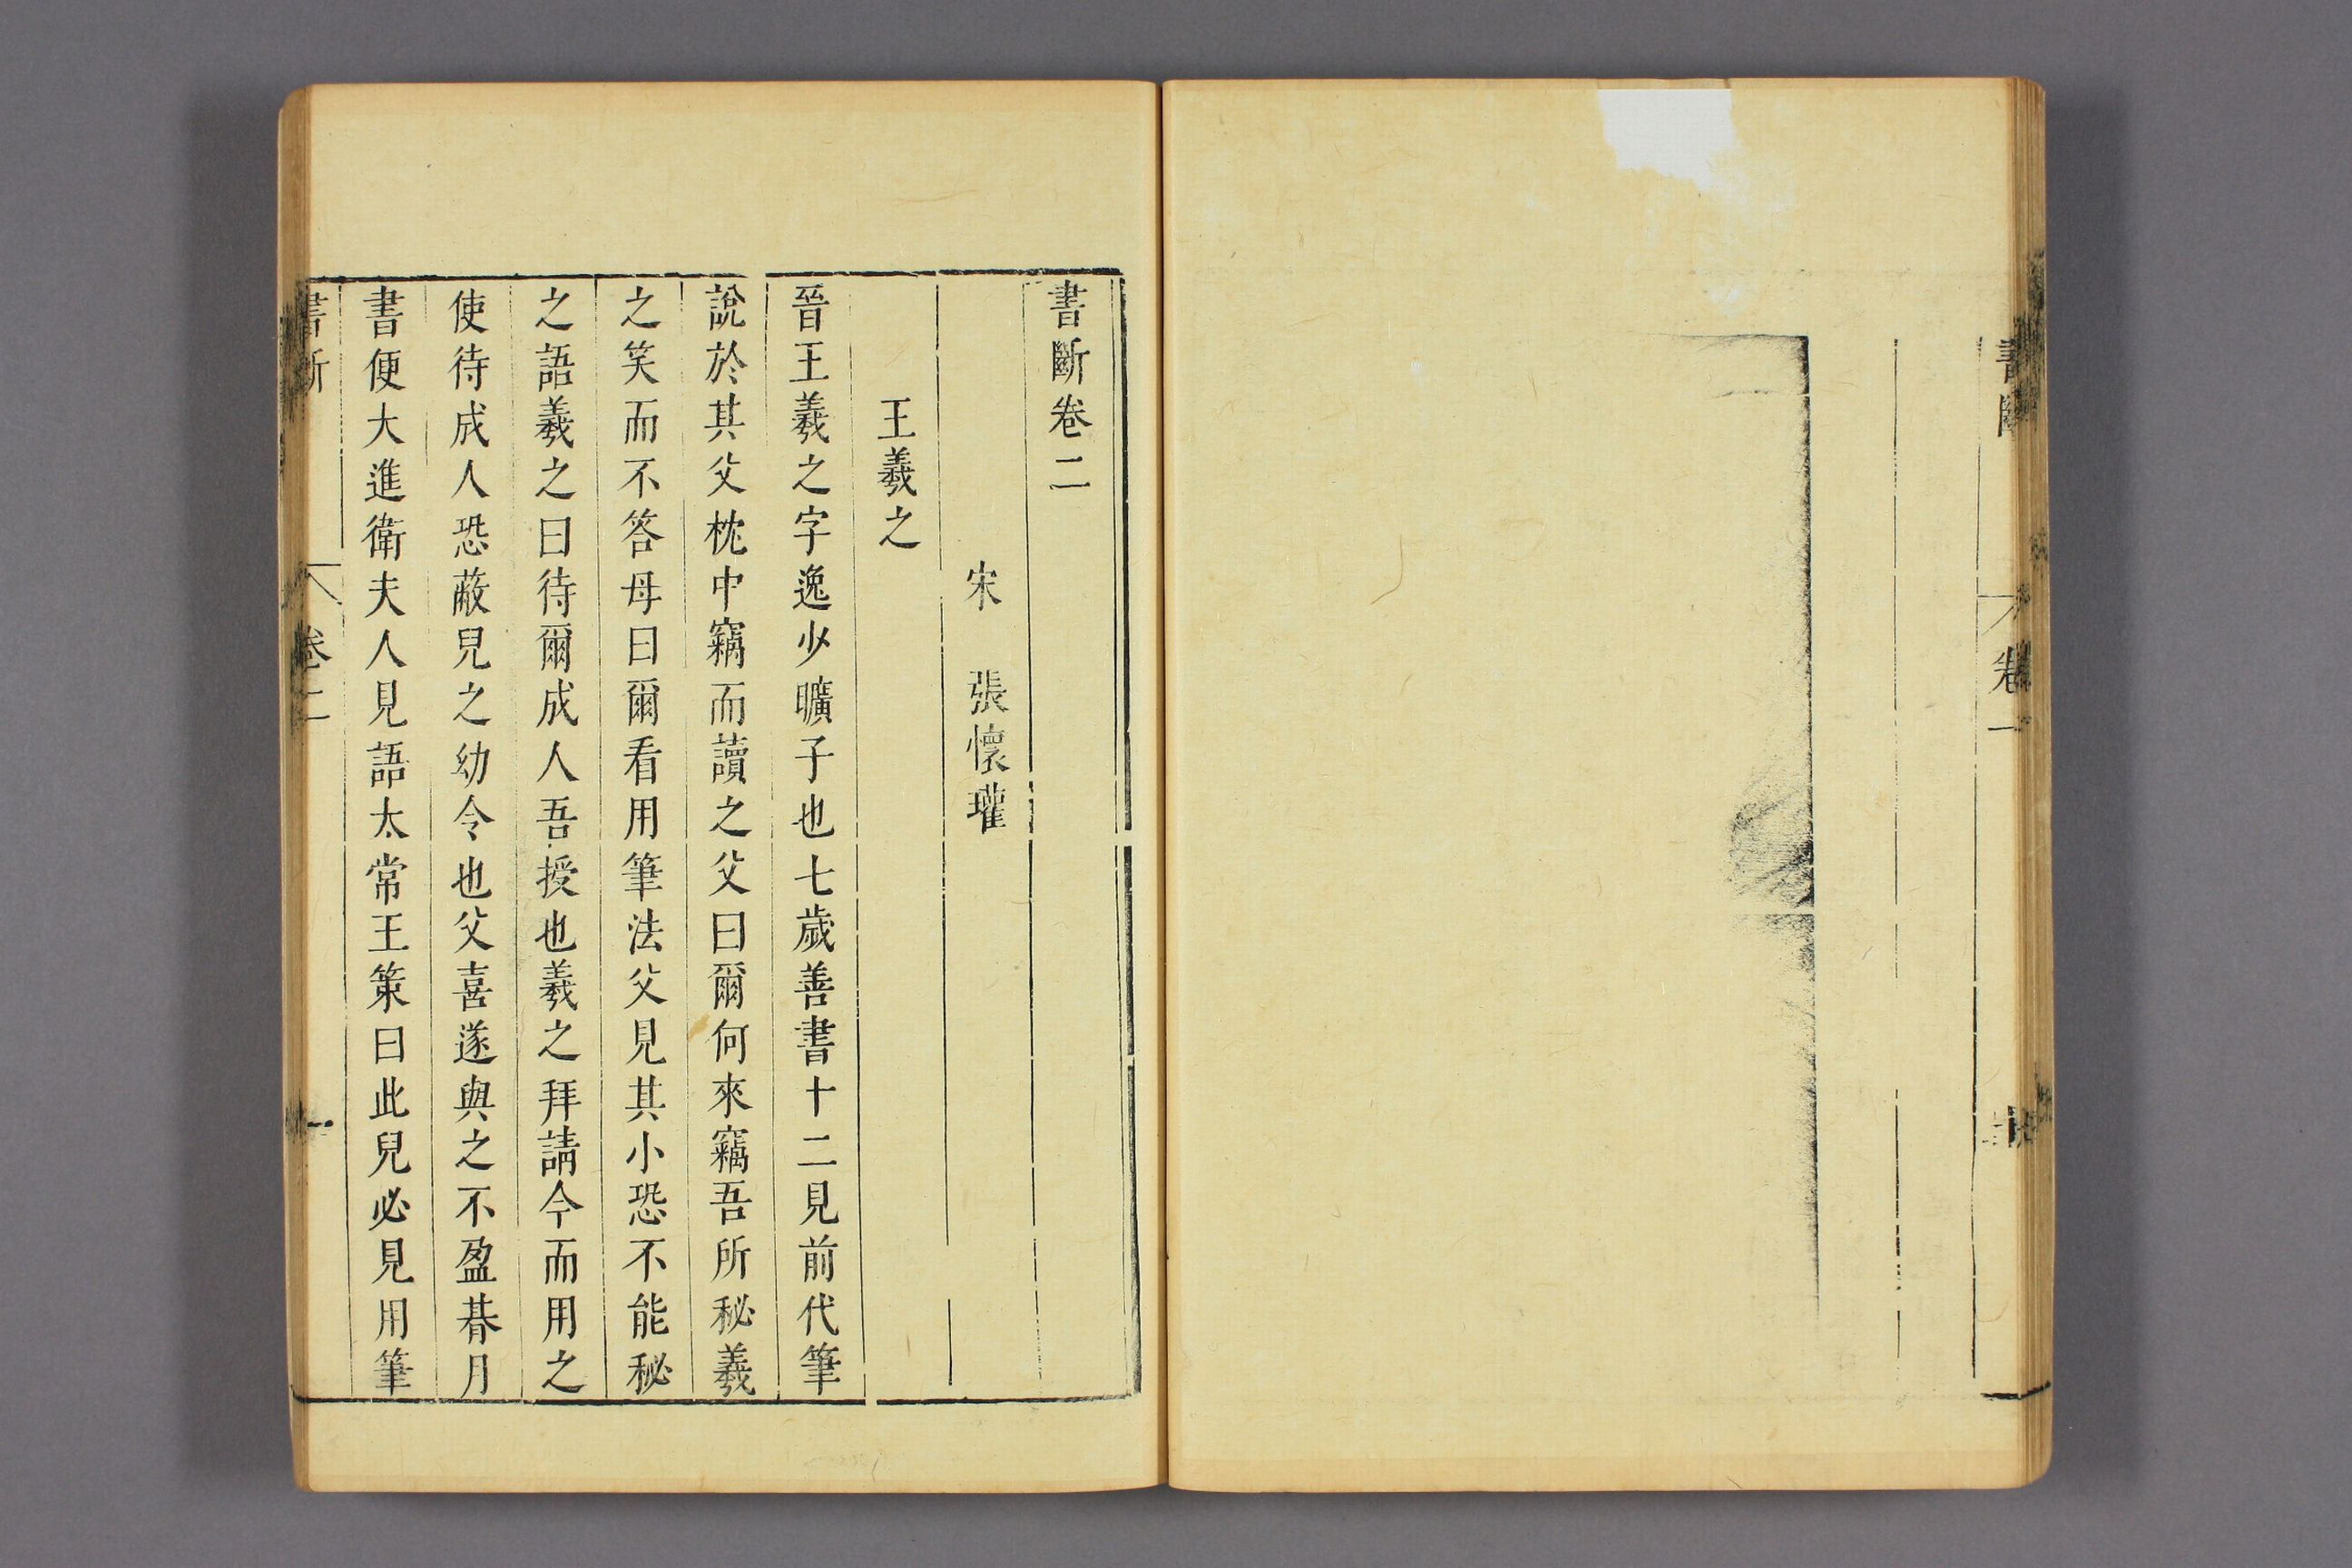 書斷
卷一
書斷卷二
宋　張懷瓘
王羲之
晉王羲之字逸少曠子也七歲善書十二見前代筆
說於其父枕中竊而讀之父曰爾何來竊吾所秘羲
之笑而不答母曰爾看用筆法父見其小恐不能秘
之語羲之曰待爾成人吾授也羲之拜請今而用之
使待成人恐蔽兒之幼令也父喜遂與之不盈朞月
書便大進衛夫人見語太常王策曰此兒必見用筆
書斷
卷二
一